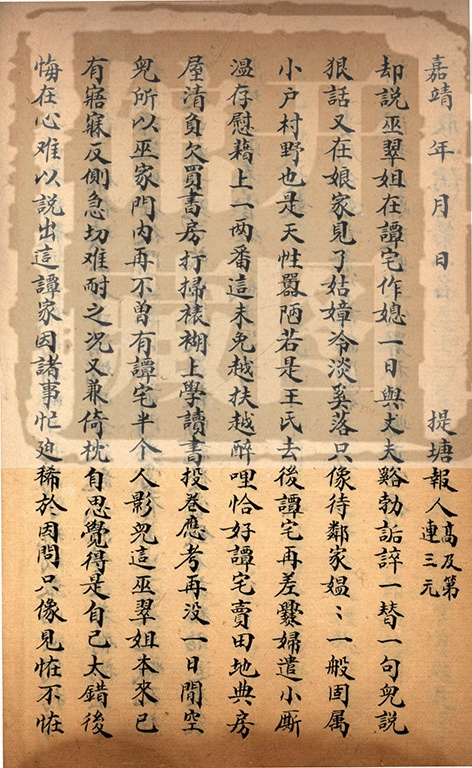 嘉靖 年 月 日 提塘報人高及第連三元
却說巫翠姐在譚宅作媳一日與丈夫谿勃詬誶一替一句兒說
狠話又在娘家見了姑嫜冷淡奚落只像待鄰家媪〻一般固属
小户村野也是天性嚚陋若是王氏去後譚宅再差爨婦遣小厮
温存慰藉上一兩番這未免越扶越醉哩恰好譚宅賣田地典房
屋清負欠買書房打掃裱糊上學讀書投卷應考再没一日閒空
兒所以巫家門内再不曾有譚宅半个人影兒這巫翠姐本來已
有寤寐反側急切难耐之况又兼倚枕自思覺得是自己太錯後
悔在心难以説出這譚家因諸事忙廹稀於因問只像見恠不恠